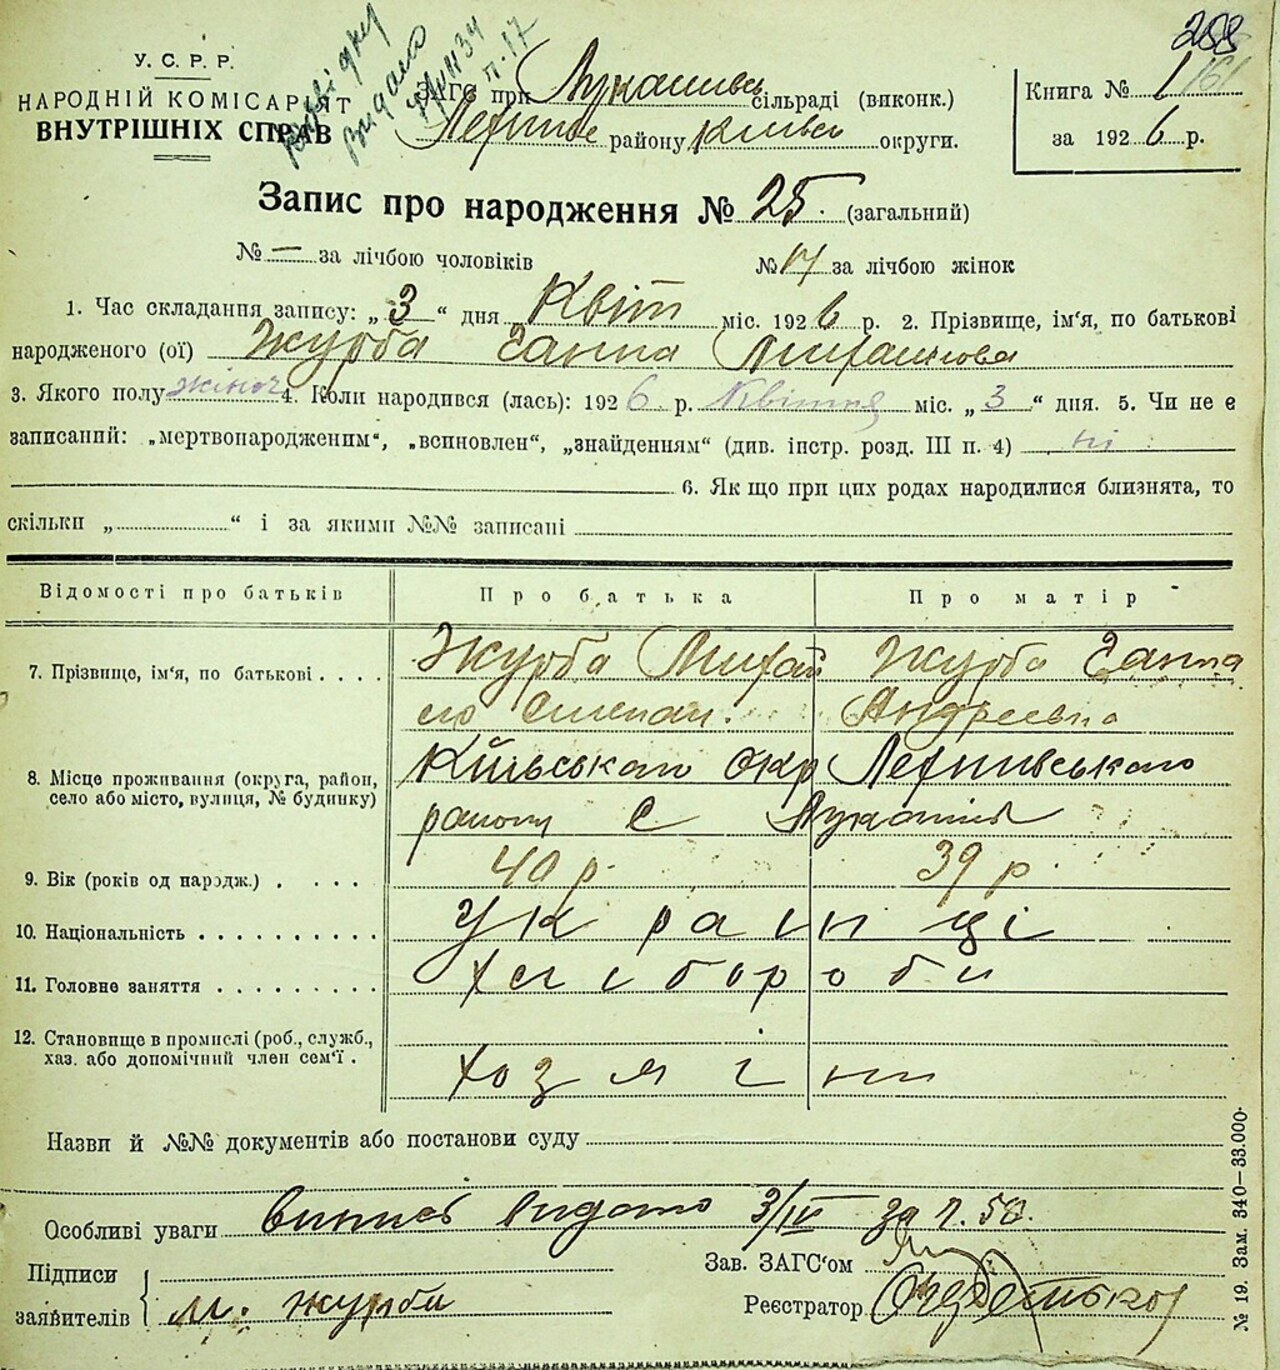 258
У. С. Р. Р.
НАРОДНІЙ КОМІСАРІЯТ
ВНУТРІШНІХ СПРАВ
ЗАГС при Лукашівсь сільраді (виконк.)
району Київсь округи.
Книга № 1 161
за 1926 р.
Запис про народження № 25. (загальний)
№ — за лічбою чоловіків № 17 за лічбою жінок
1. Час складання запису: „ 3 “ дня Квіт міс. 1926 р. 2. Прізвище, ім'я, по батькові
народженого (ої) Журба Ганна
3. Якого полу жіноч 4. Коли народився (лась): 1926 р. Квітня міс. „ 3 “ дня. 5. Чи не є
записаний: „мертвонародженим“, „всиновлен“, „знайденням“ (див. інстр. розд. III п. 4) ні
6. Як що при цих родах народилися близнята, то
скільки „ “ і за якими №№ записані
Відомості про батьків Про батька Про матір
7. Прізвище, ім'я, по батькові . . . . Журба Михай Журба Ганна
ло Степан. Андреевна
8. Місце проживання (округа, район, Окр
село або місто, вулиця, № будинку) району С Лукашів
9. Вік (років од народж.) . . . . 40 р. 39 р.
10. Національність . . . . . . . . . . Украінці
11. Головне заняття . . . . . . . . . Хлібороби
12. Становище в промислі (роб., служб.,
хаз. або допомічний член сем'ї . Хозяіни
Назви й №№ документів або постанови суду
Особливі уваги випись видано 3/IV за №. 50.
Підписи Зав. ЗАГС'ом
заявителів М. Журба Реєстратор
№ 19. Зам. 340—33.000.